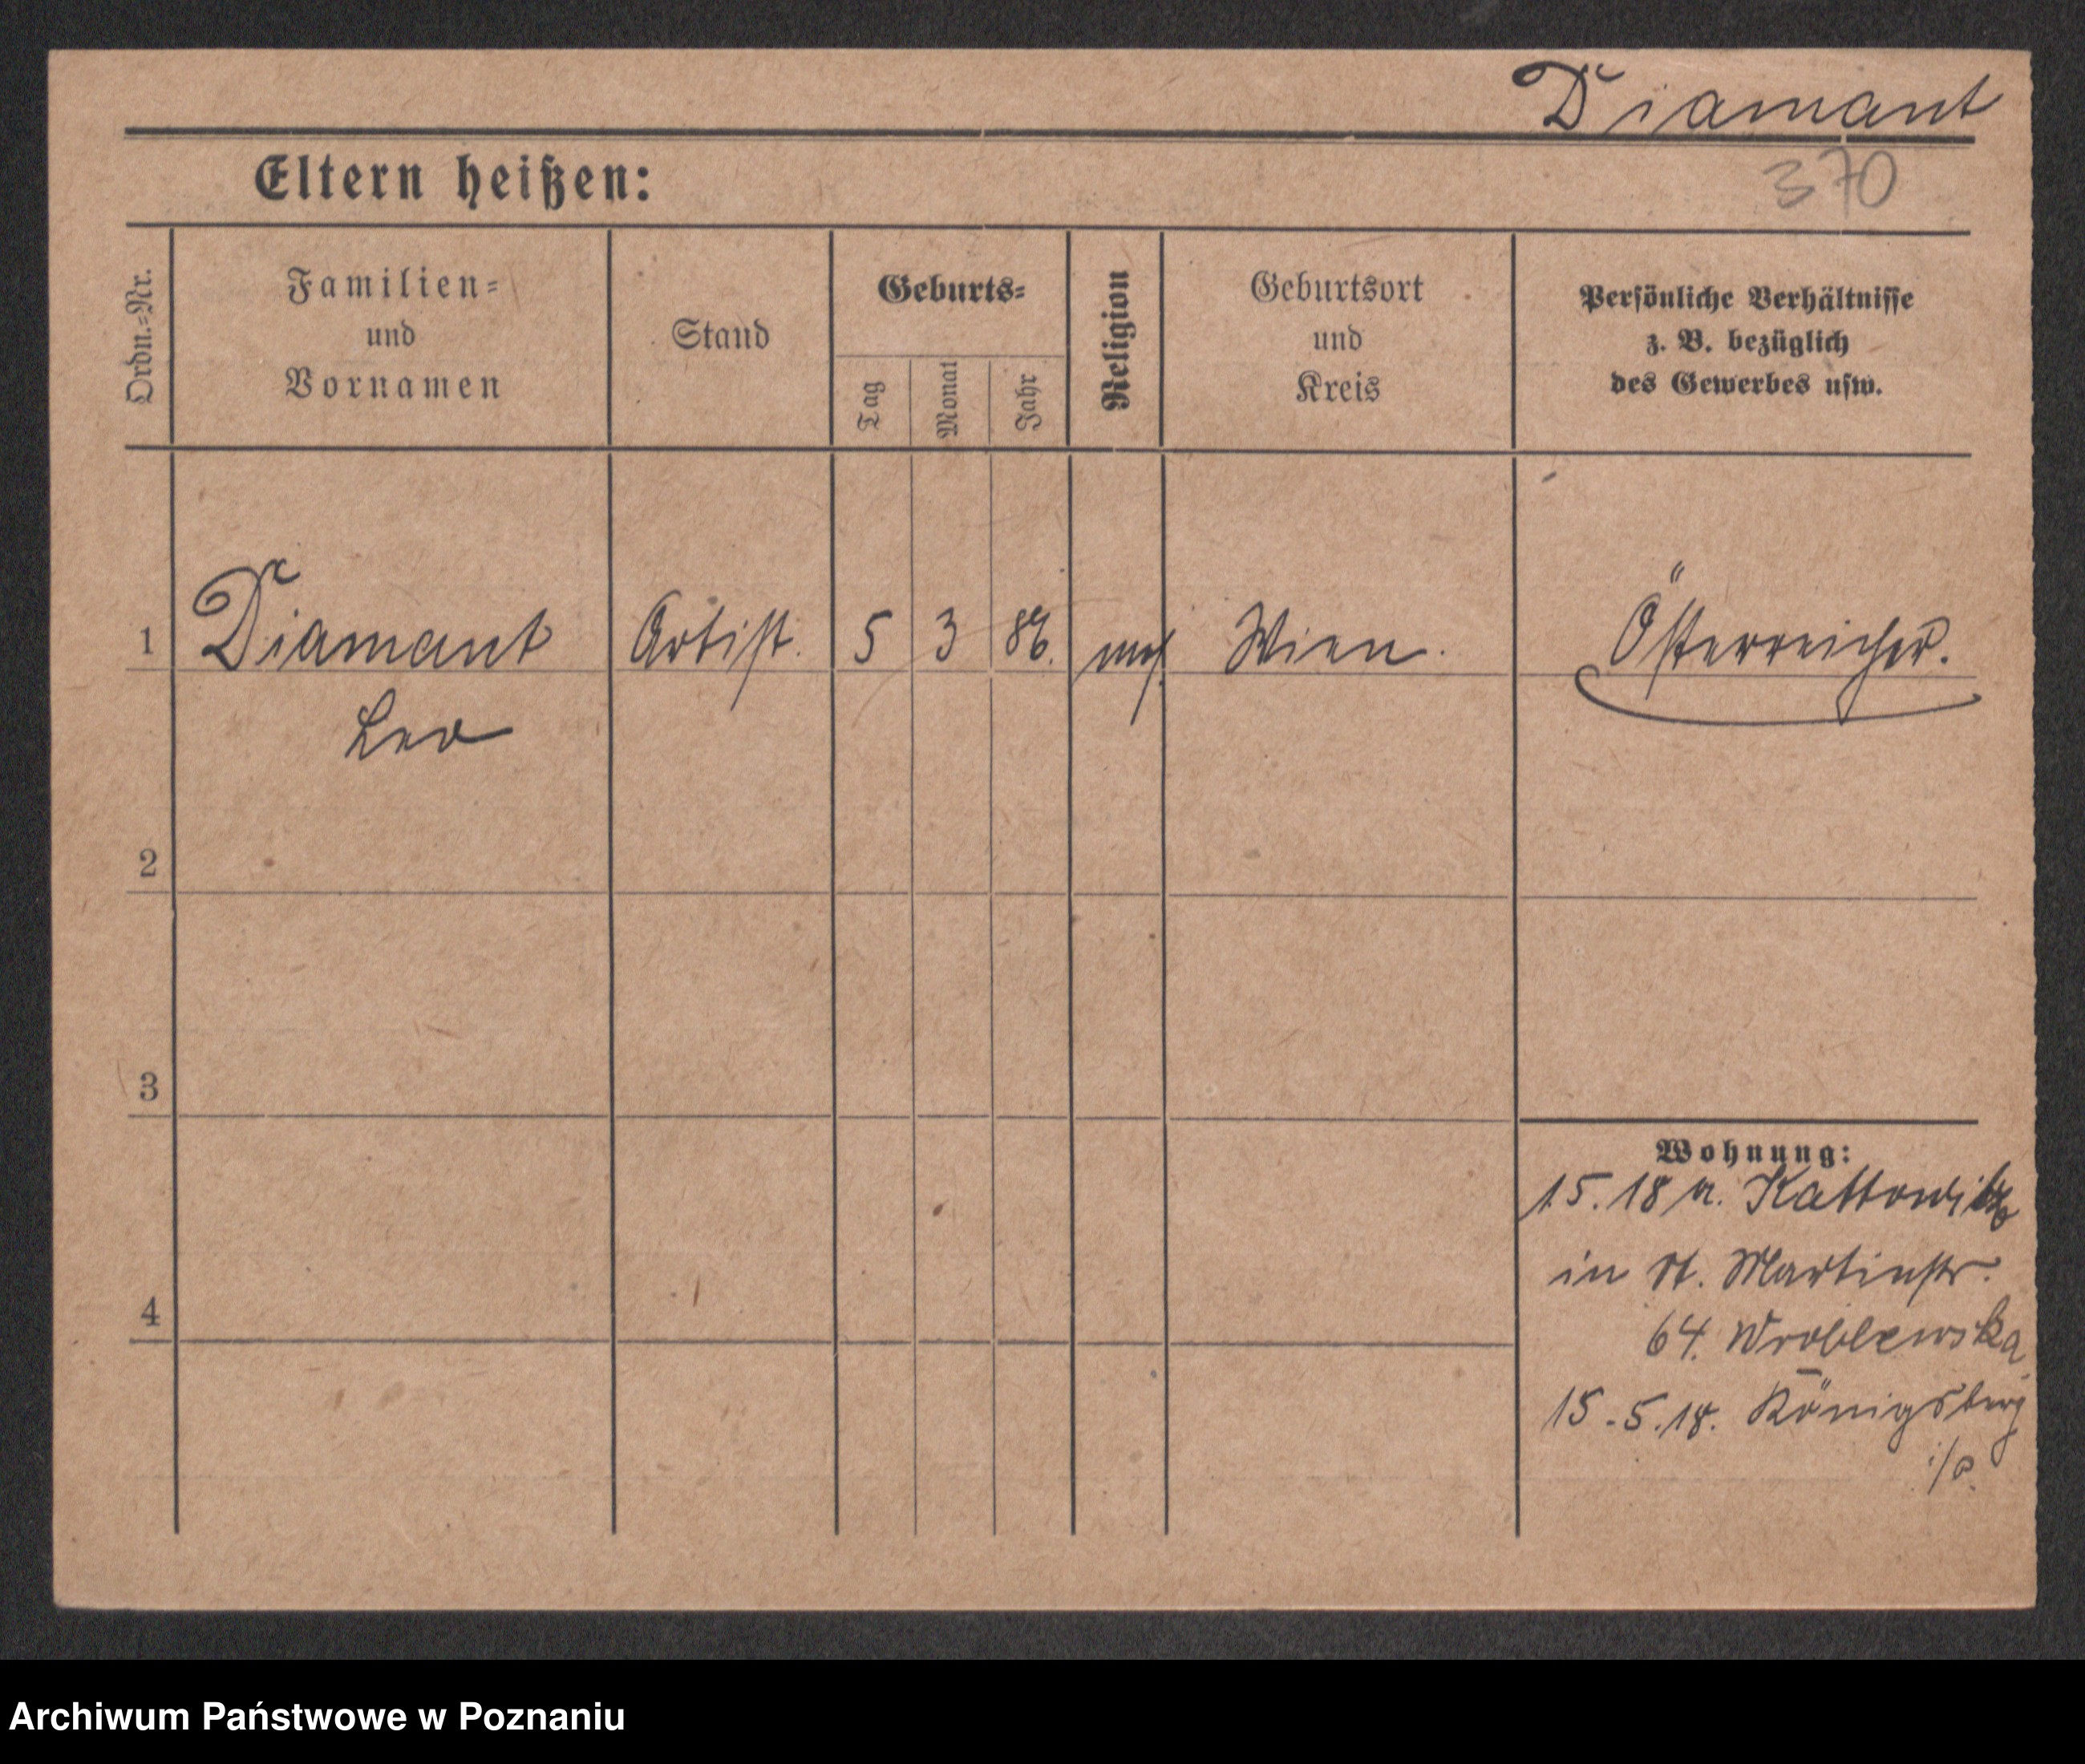 Diamant
370
Eltern heißen:
Ordn.-Nr.
Familien-
und
Vornamen
Stand
Geburts-
Tag
Monat
Jahr
Religion
Geburtsort
und
Kreis
Persönliche Verhältnisse
z. B. bezüglich
des Gewerbes usw.
1 Diamant Artist. 5 3 86. mos. Wien. Österreicher.
Leo
2
3
Wohnung:
1.5.18 a. Kattowitz
in St. Martinstr.
4
64. Wroblewska
15.5.18. Königsberg
i/
Archiwum Państwowe w Poznaniu